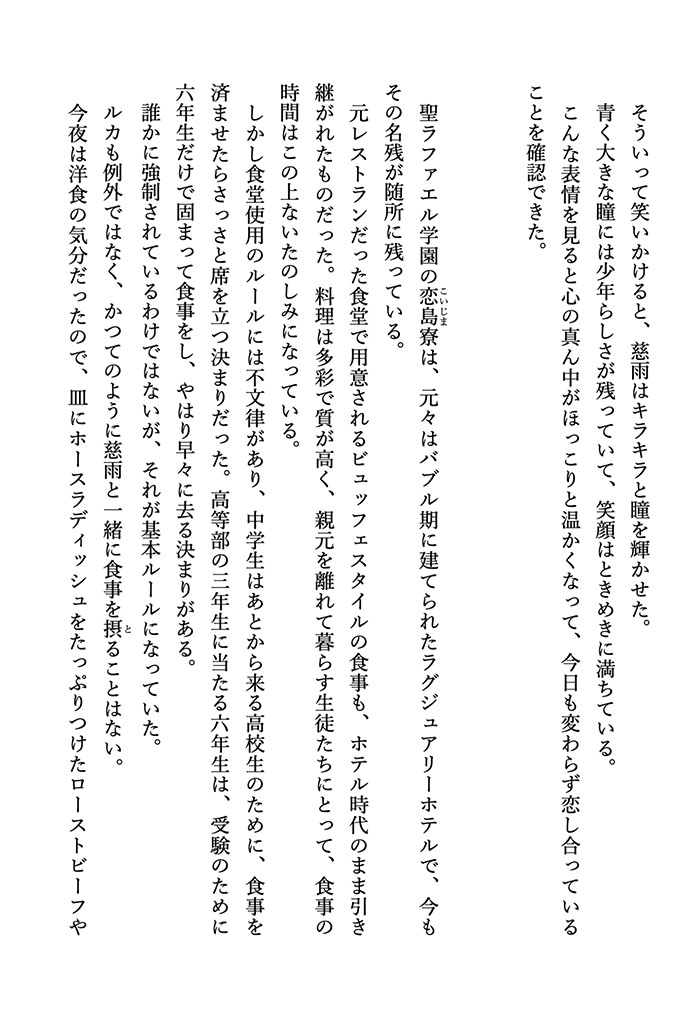 そういって笑いかけると、慈雨はキラキラと瞳を輝かせた。
青く大きな瞳には少年らしさが残っていて、笑顔はときめきに満ちている。
こんな表情を見ると心の真ん中がほっこりと温かくなって、今日も変わらず恋し合っている
ことを確認できた。
聖ラファエル学園の恋島寮は、元々はバブル期に建てられたラグジュアリーホテルで、今も
その名残が随所に残っている。
元レストランだった食堂で用意されるビュッフェスタイルの食事も、ホテル時代のまま引き
継がれたものだった。料理は多彩で質が高く、親元を離れて暮らす生徒たちにとって、食事の
時間はこの上ないたのしみになっている。
しかし食堂使用のルールには不文律があり、中学生はあとから来る高校生のために、食事を
済ませたらさっさと席を立つ決まりだった。高等部の三年生に当たる六年生は、受験のために
六年生だけで固まって食事をし、やはり早々に去る決まりがある。
誰かに強制されているわけではないが、それが基本ルールになっていた。
ルカも例外ではなく、かつてのように慈雨と一緒に食事を摂ることはない。
今夜は洋食の気分だったので、皿にホースラディッシュをたっぷりつけたローストビーフや